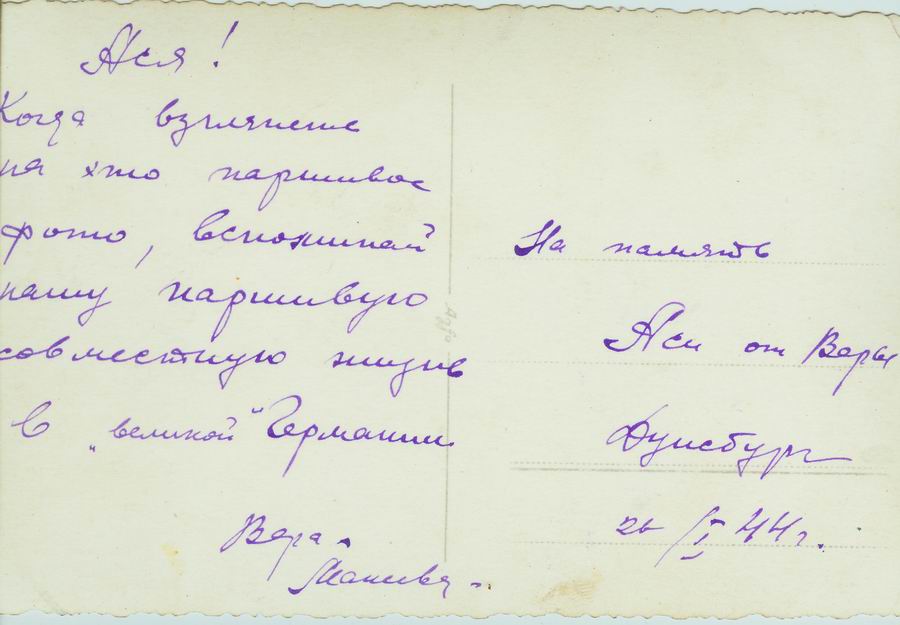 Ася!
Когда взглянешь
на это паршивое
фото, вспоминай
нашу паршивую
совместную жизнь
в „великой" Германии
Вера.
На память
Аси от Веры
Дуисбург
26/I 44г.
Agfa